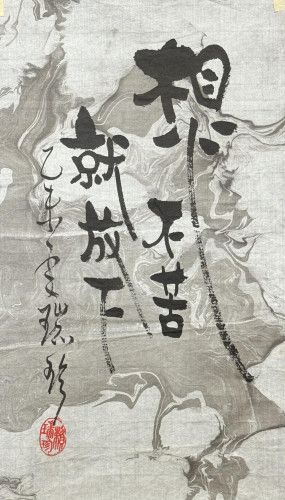 想不苦
就放下
乙未